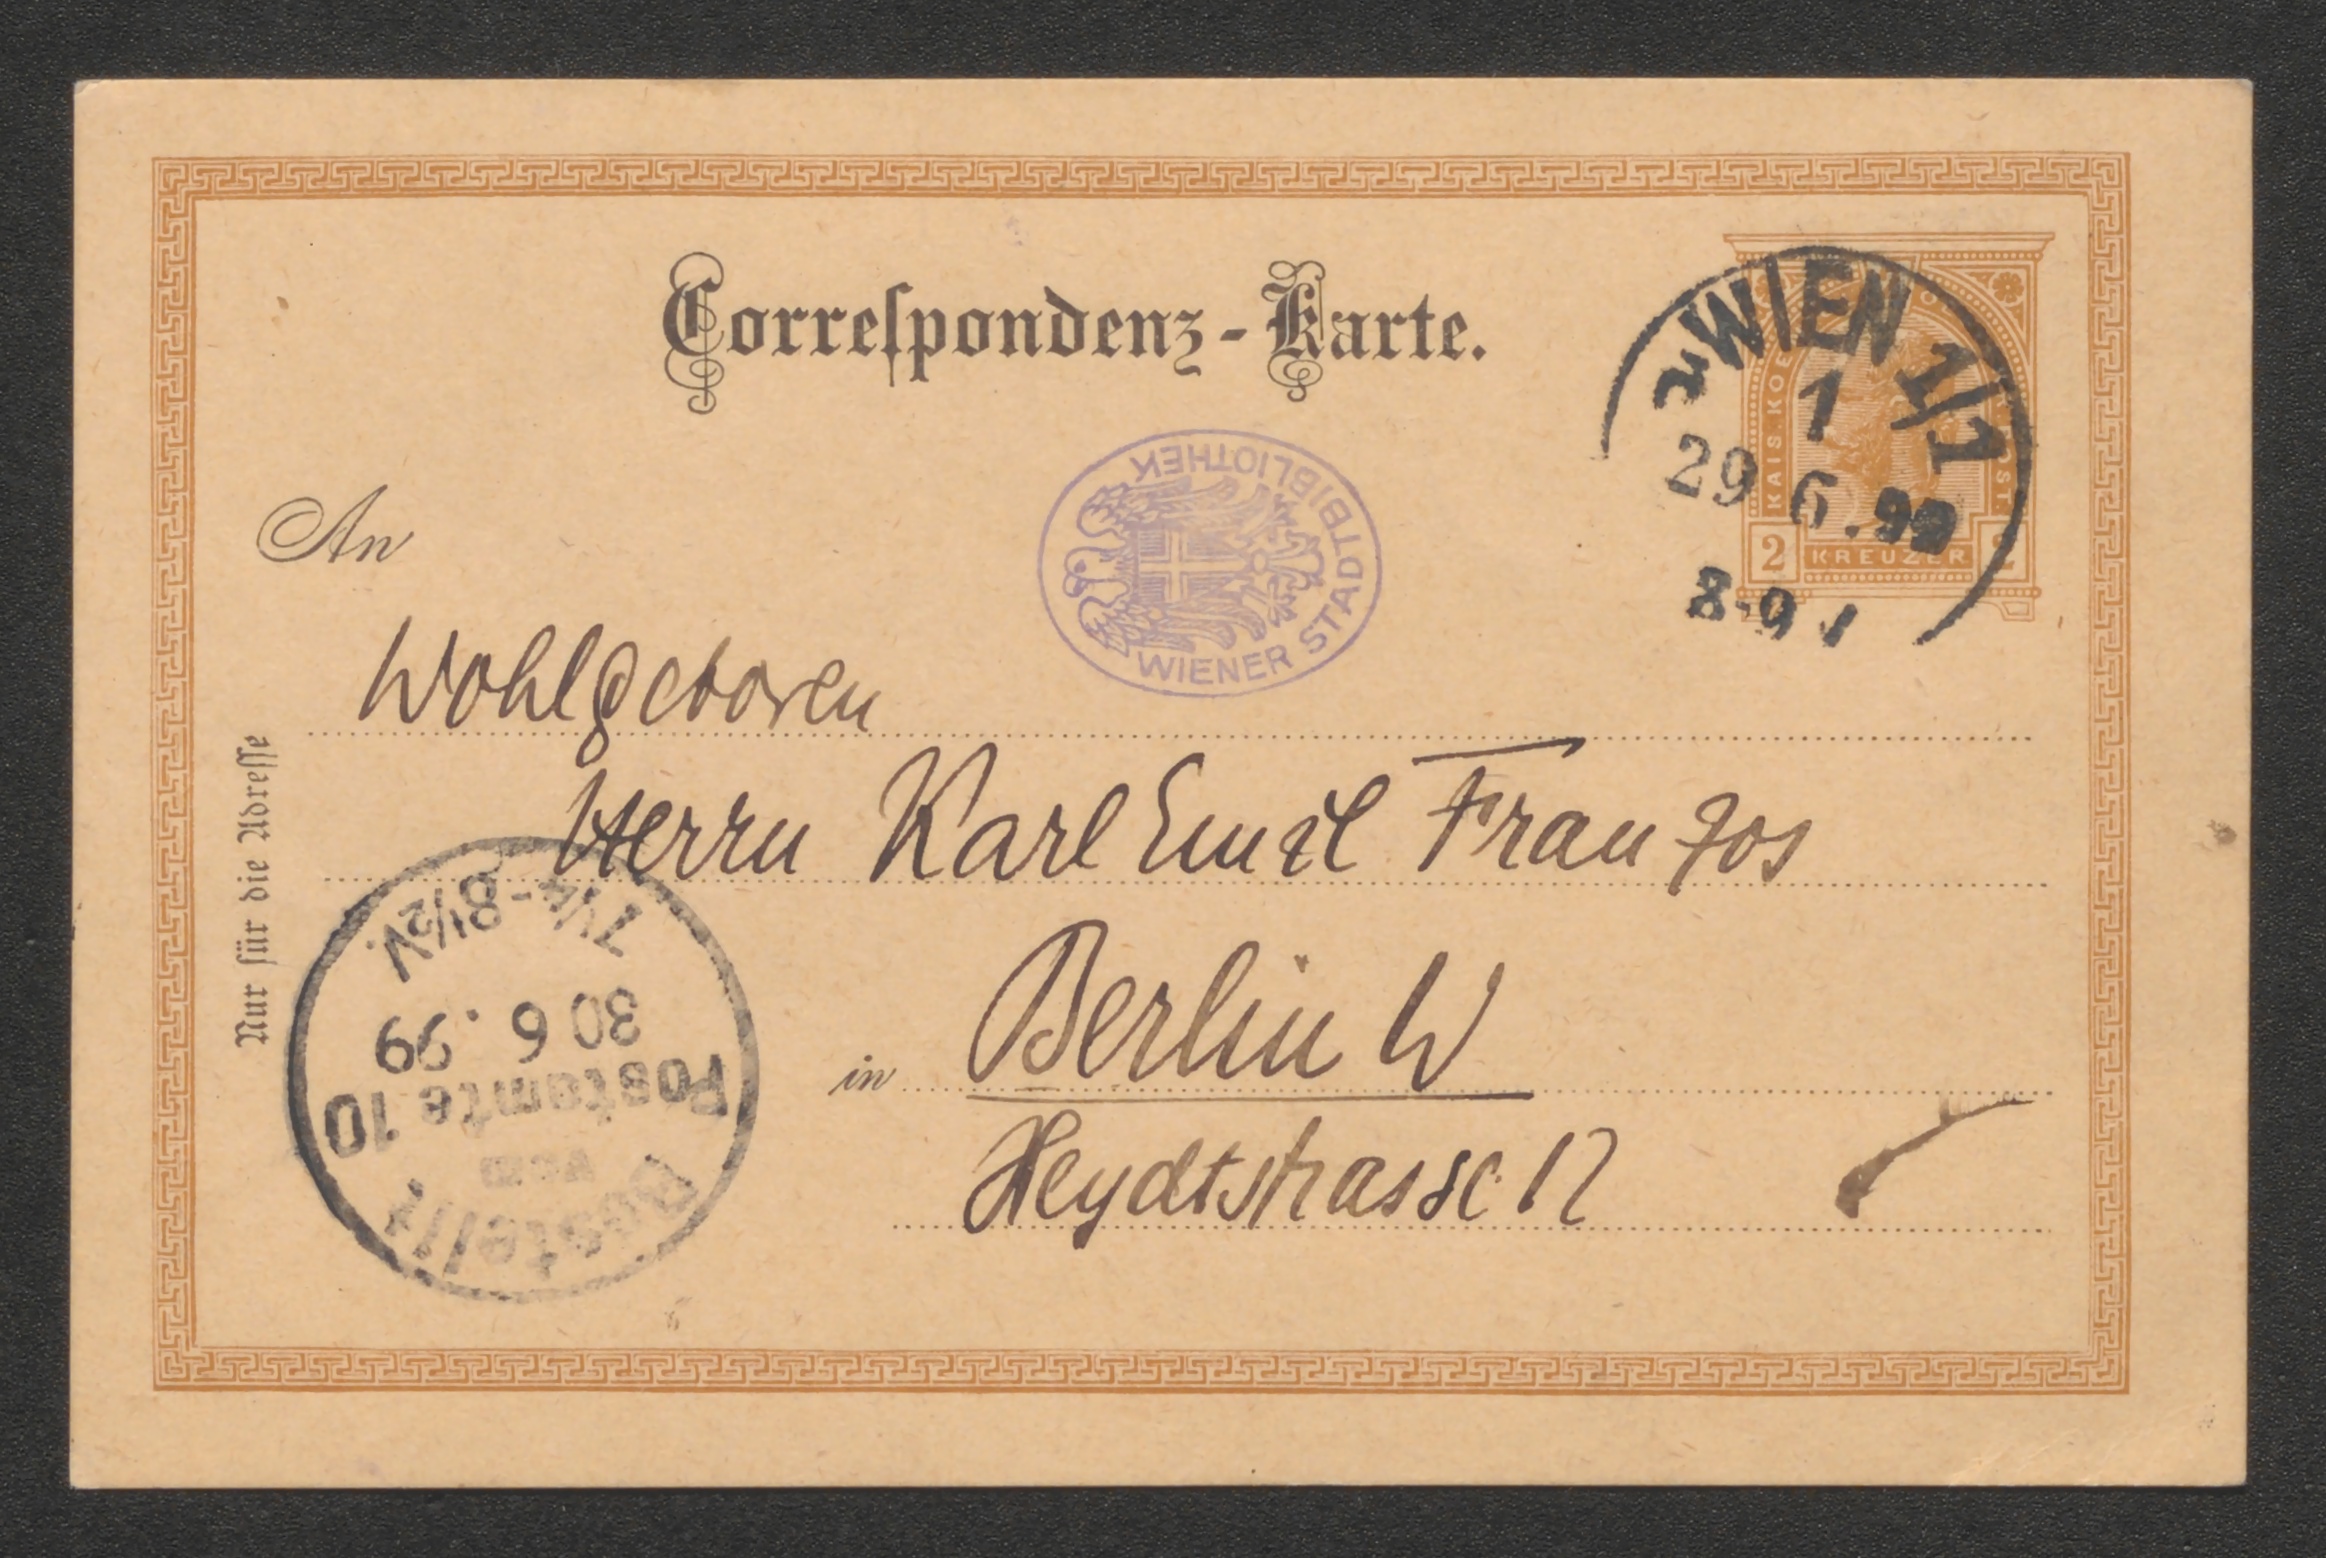 Correſpondenz-Karte.
WIEN 1/1
1
29 6.99
8-9
KAIS. KOE
2 KREUZER
An
WIENER STADTBIBLIOTHEK
Wohlgeboren
Herrn Karl Emil Franzos
in Berlin W
Heydtstrasse
Nur für die Adreſſe
Bestellt
vom
Postamte 10
30 6.99
7¼-8½V.